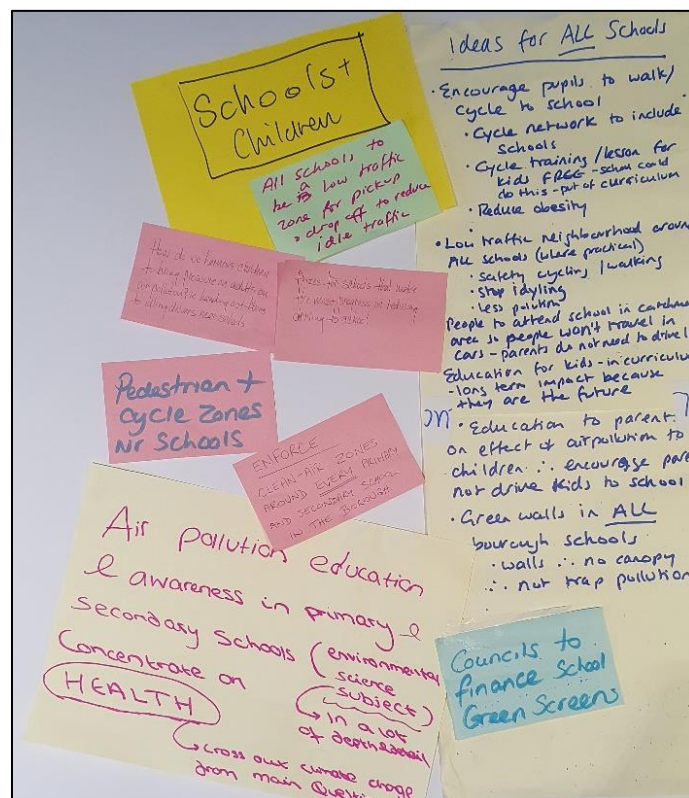 Schools +
Children
All schools to
be a low traffic
zone for pickup
drop off to reduce
idle traffic
How do we harness children
to bring pressure on adults on
air pollution? ie handing out
to idling drivers near schools
for schools that make
the most progress on reducing
Pedestrian +
Cycle Zones
Nr Schools
ENFORCE
CLEAN-AIR ZONES
AROUND EVERY PRIMARY
AND SECONDARY SCHOOL
IN THE BOROUGH
Air pollution education
& awareness in primary &
secondary schools (environmental
science
subject)
Concentrate on
HEALTH
↳ in a lot
of depth & detail
↳ cross out climate change
from main Question
Ideas for ALL Schools
• Encourage pupils to walk/
cycle to school
• Cycle network to include
schools
• Cycle training/lesson for
kids FREE - school could
do this - part of curriculum
• Reduce obesity
• Low traffic neighbourhood around
ALL schools (where practical)
• safety cycling/walking
• stop idyling
• less pollution
People to attend school in catchm
area so people won't travel in
cars - parents do not need to drive
Education for kids - in curriculum
- long term impact because
they are the future
• Education to parent
on effect of airpollution to
children ∴ encourage pare
not drive kids to school
• Green walls in ALL
bourough schools
• walls ∴ no canopy
∴ not trap pollution
Councils to
finance School
Green Screens